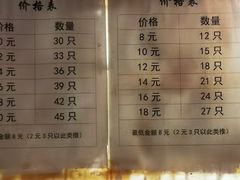 价格表
价格 数量
0 元 30 只
2 元 33 只
4 元 36 只
6 元 39 只
8 元 42 只
0 元 45 只
金额 8 元（2 元 3 只以此类推）
价格表
价格 数量
8 元 12 只
10 元 15 只
12 元 18 只
14 元 21 只
16 元 24 只
18 元 27 只
最低金额 8 元（2 元 3 只以此类推）